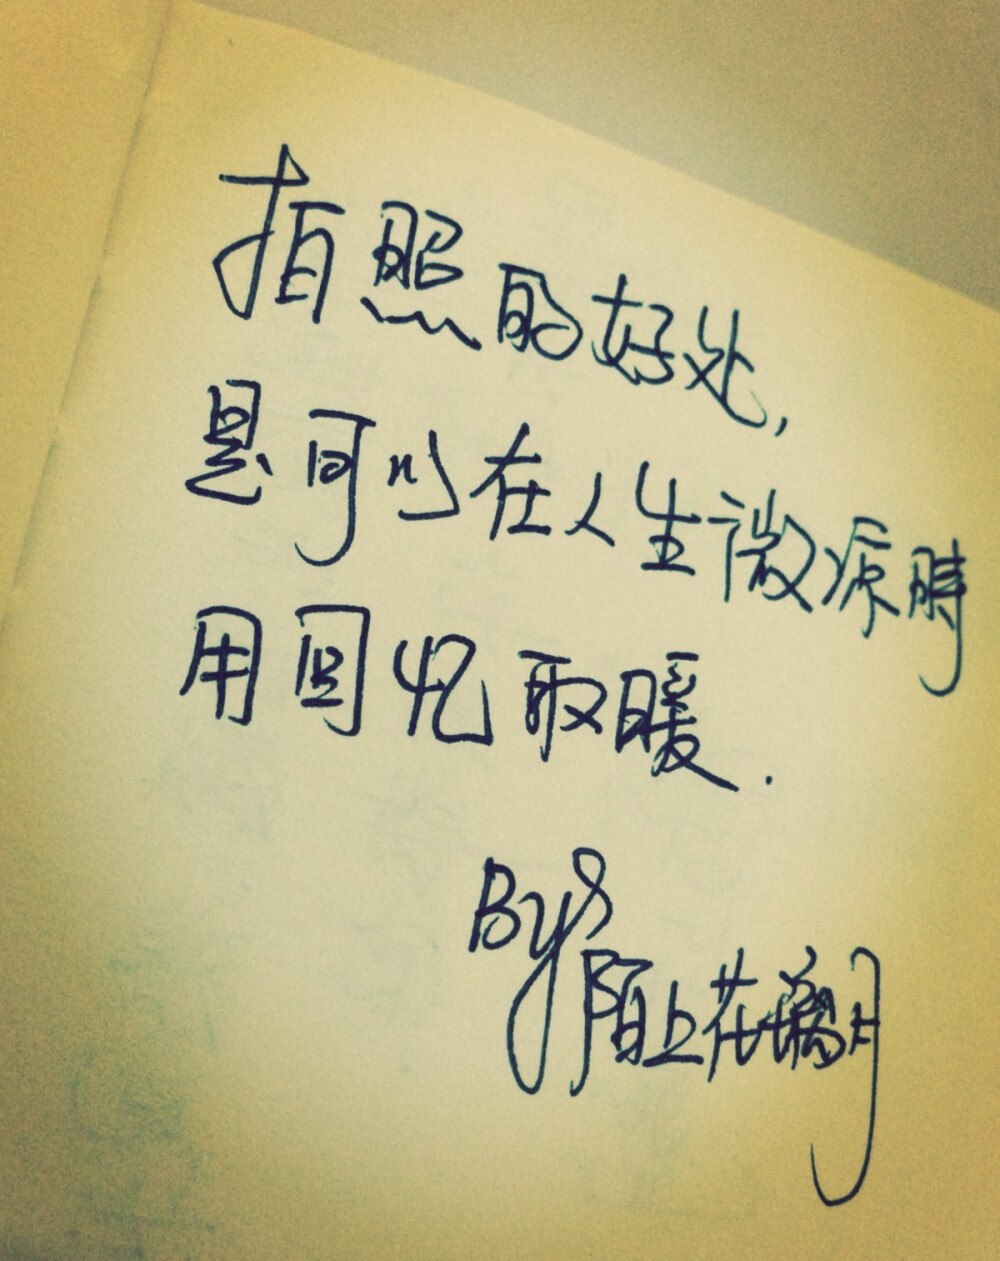 拍照的好处,
是可以在人生微凉時
用回忆取暖.
By
陌上花